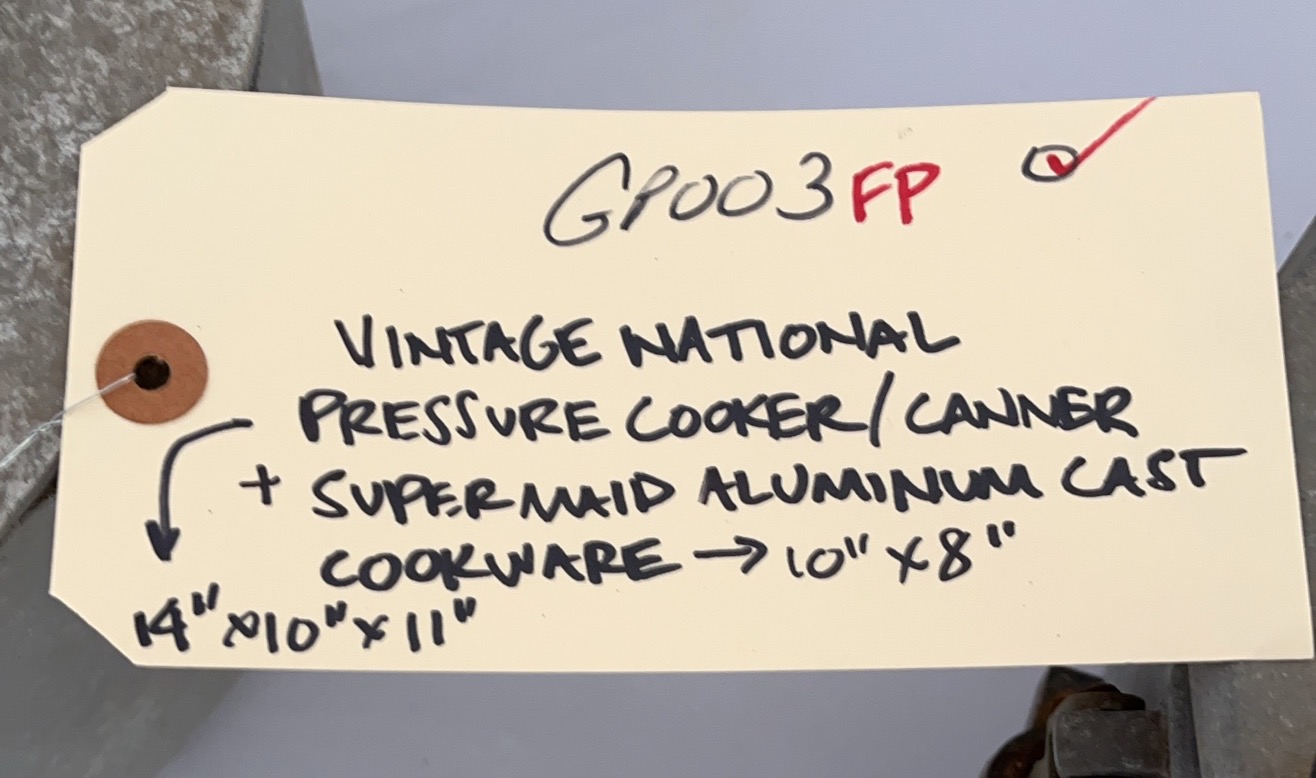 GP003FP
VINTAGE NATIONAL
PRESSURE COOKER/CANNER
+ SUPERMAID ALUMINUM CAST
COOKWARE → 10" x 8"
14" x 10" x 11"